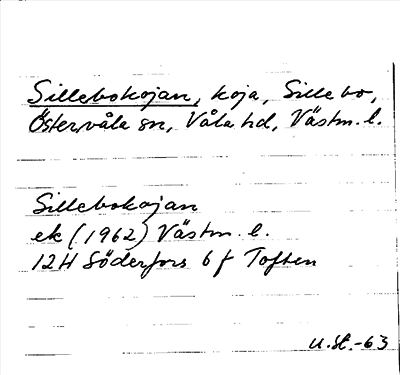 Sillebokojan, koja, Sillebo,
Östervåla sn, Våla hd, Västm. l.
Sillebokojan
ek (1962) Västm. l.
12H Söderfors 6 f Toften
U.St.-63